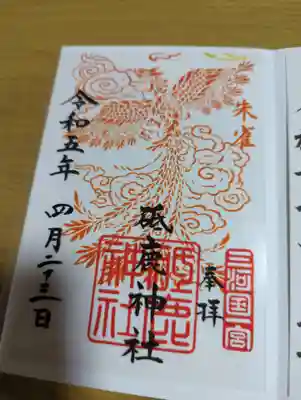 朱雀
奉拝
三河国一宮
砥鹿神社
砥鹿神社
令和五年 四月二十三日